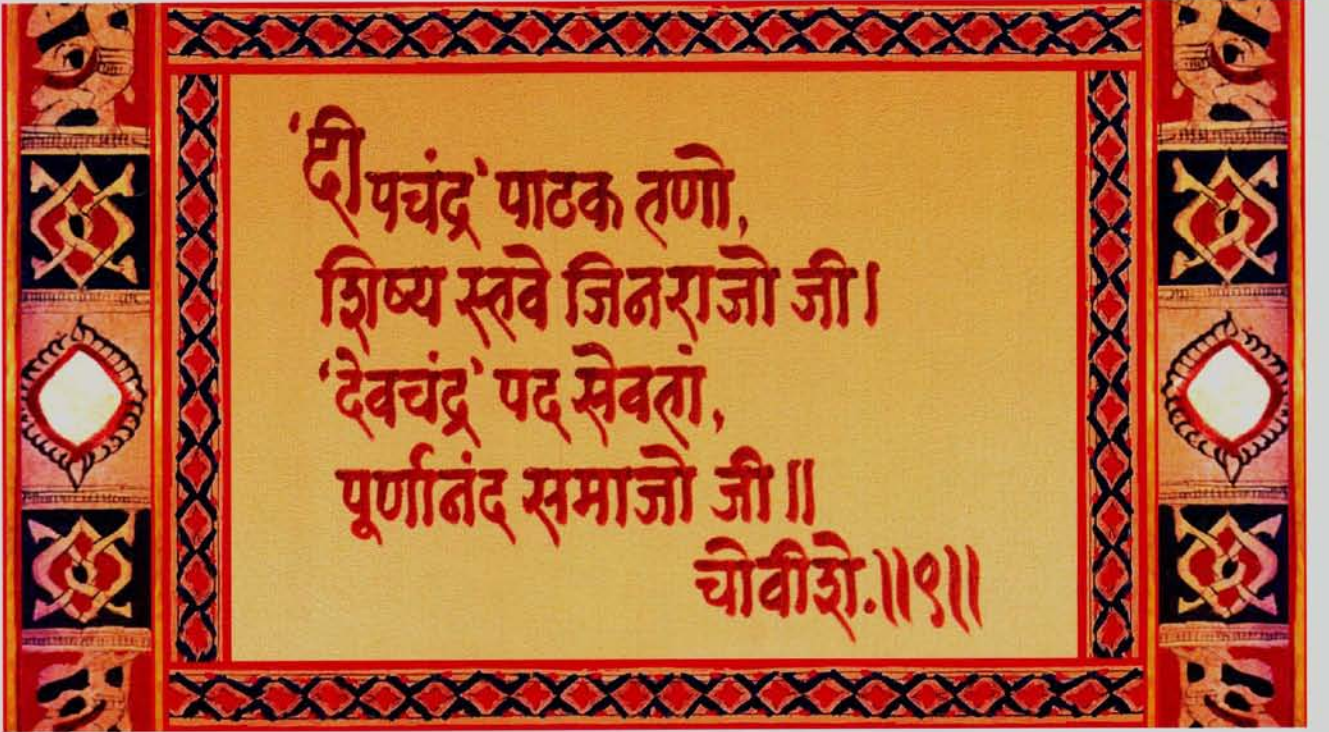 'दीपचंद्र' पाठक तणो,
शिष्य स्तवे जिनराजो जी।
'देवचंद्र' पद सेवतां,
पूर्णानंद समाजो जी॥
चोवीशे.॥९॥